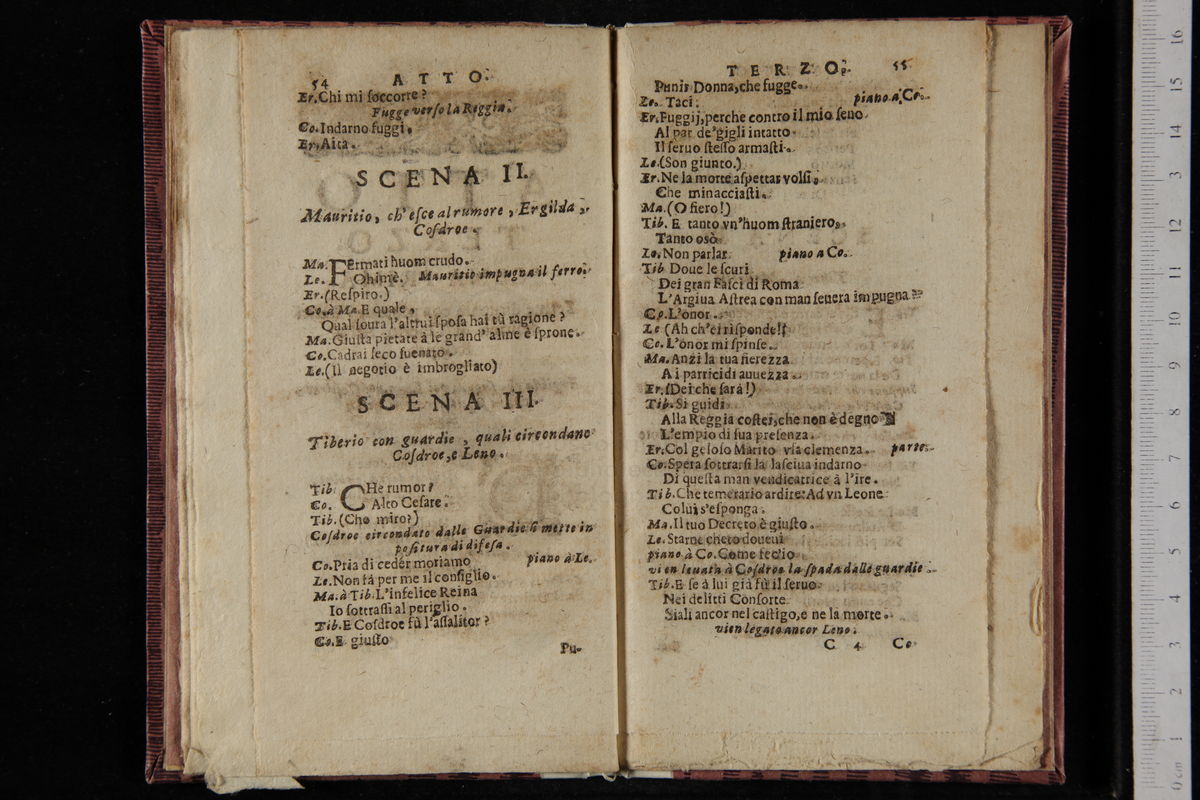 54 ATTO.
Er. Chi mi ſoccorre?
Fugge verſo la Reggia.
Co. Indarno fuggi.
Er. Aita.
SCENA II.
Mauritio, ch'eſce al rumore, Ergilda,
Coſdroe.
Ma. Fermati huom crudo.
Le. Ohimè. Mauritio impugna il ferro.
Er. (Reſpiro.)
Co. à Ma. E quale,
Qual ſoura l'altrui ſpoſa hai tù ragione?
Ma. Giuſta pietate à le grand' alme è ſprone.
Co. Cadrai ſeco ſuenato.
Le. (Il negotio è imbrogliato)
SCENA III.
Tiberio con guardie, quali circondano
Coſdroe, e Leno.
Tib. CHe rumor?
Co. Alto Ceſare.
Tib. (Che miro?)
Coſdroe circondato dalle Guardie ſi mette in
poſitura di difeſa.
Co. Pria di ceder moriamo piano à Le.
Le. Non fà per me il conſiglio.
Ma. à Tib. L'infelice Reina
Io ſottraſſi al periglio.
Tib. E Coſdroe fù l'aſſalitor?
Co. E giuſto
Pu-
TERZO. 55
Punir Donna, che fugge.
Le. Taci. piano à Co.
Er. Fuggij, perche contro il mio ſeno
Al par de'gigli intatto
Il ſeruo ſteſſo armaſti.
Le. (Son giunto.)
Er. Ne la morte aſpettar volſi,
Che minacciaſti.
Ma. (O fiero!)
Tib. E tanto vn'huom ſtraniero,
Tanto osò
Le. Non parlar piano a Co.
Tib Doue le ſcuri
Dei gran Faſci di Roma
L'Argiua Aſtrea con man ſeuera impugna?
Co. L'onor.
Le (Ah ch'ei riſponde!)
Co. L'onor mi ſpinſe.
Ma. Anzi la tua fierezza
A i parricidi auuezza.
Er. (Dei che ſarà!)
Tib. Si guidi
Alla Reggia coſtei, che non è degno
L'empio di ſua preſenza.
Er. Col geloſo Marito vſa clemenza. parte.
Co. Spera ſottrarſi la laſciua indarno
Di queſta man vendicatrice à l'ire.
Tib. Che temerario ardire: Ad vn Leone
Colui s'eſponga.
Ma. Il tuo Decreto è giuſto.
Le. Starne cheto doueui
piano à Co. Come fec'io
vien leuata à Coſdroe la ſpada dalle guardie.
Tib. E ſe à lui già fù il ſeruo
Nei delitti Conſorte
Siali ancor nel caſtigo, e ne la morte.
vien legato ancor Leno.
C 4 Co
0 cm 1 2 3 4 5 6 7 8 9 10 11 12 13 14 15 16